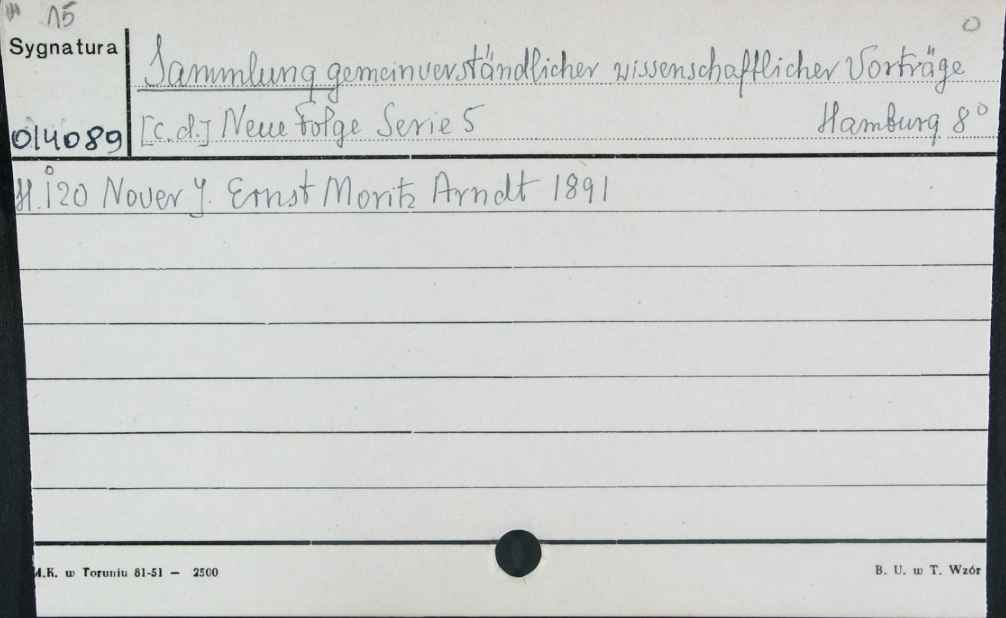 15
0
Sygnatura
Sammlung gemeinverständlicher wissenschaftlicher Vorträge
014089
[c.d.] Neue Folge Serie 5 Hamburg 8°
H. 120 Nover J. Ernst Moritz Arndt 1891
.K. w Toruniu 81-51 — 2500
B. U. w T. Wzór